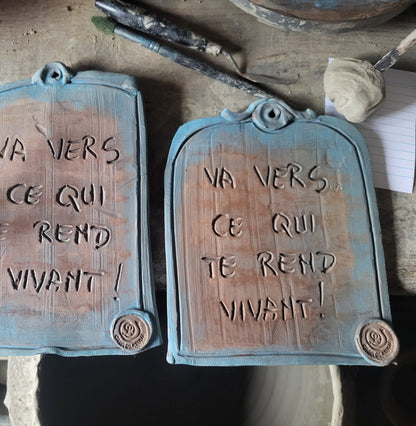 VA VERS
CE QUI
REND
VIVANT!
VA VERS
CE QUI
TE REND
VIVANT!